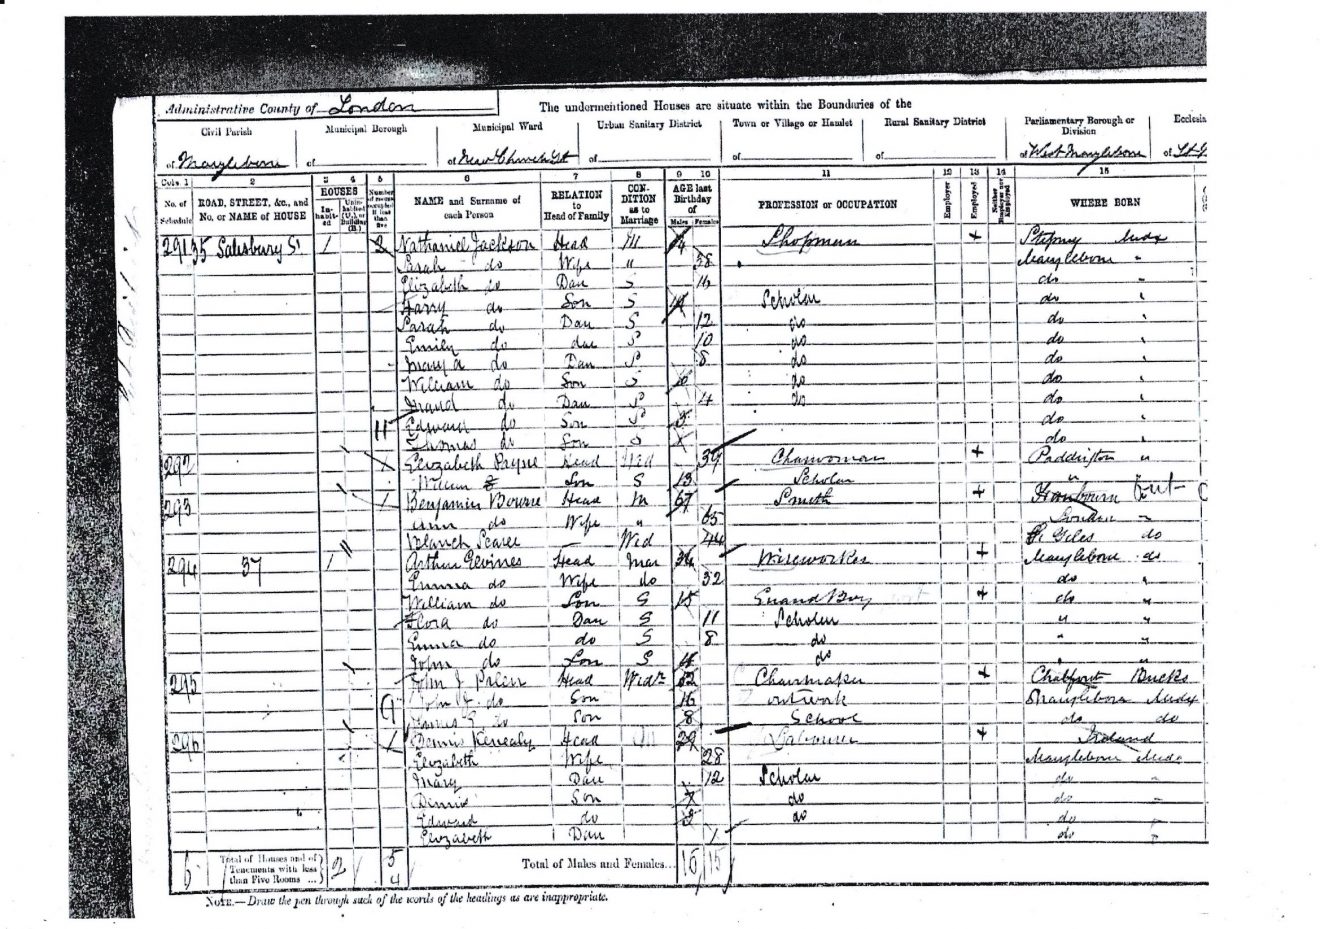 Administrative County of London The undermentioned Houses are situate within the Boundaries of the
Civil Parish Municipal Borough Municipal Ward Urban Sanitary District Town or Village or Hamlet Rural Sanitary District Parliamentary Borough or Division Ecclesia
of Marylebone of of New Church St of of of of West Marylebone of St
Cols. 1 2 3 4 5 6 7 8 9 10 11 12 13 14 15
No. of Schedule ROAD, STREET, &c., and No. or NAME of HOUSE HOUSES In-habit-ed Unin-habited (U.), or Building (B.) Number of rooms occupied if less than five NAME and Surname of each Person RELATION to Head of Family CON-DITION as to Marriage AGE last Birthday of Males Females PROFESSION or OCCUPATION Employer Employed Neither Employer nor Employed WHERE BORN
291 35 Salesbury St 1 2 Nathaniel Jackson Head M Shopman + Stepney Midx
Sarah do Wife " 38 Marylebone "
Elizabeth do Dau S 16 do "
Harry do Son S 14 Scholar do "
Sarah do Dau S 12 do do "
Emily do dau S 10 do do "
Mary A do Dau S 8 do do "
William do Son S do do "
Maud do Dau S 4 do do "
11 Edward do Son S do "
Thomas do Son S do "
292 Elizabeth Payne Head Wid 39 Charwoman + Paddington "
William Son S 13 Scholar "
293 1 Benjamin Bowne Head M 67 Smith +
Ann do Wife " 65 London "
Blanch Wid 44 St Giles do
294 37 1 Arthur Head Mar 34 Wireworker + Marylebone do
Emma do Wife do 32 do "
William do Son S 15 Errand Boy + do "
Flora do Dau S 11 Scholar " "
Emma do do S 8 do " "
John do Son S 4 do " "
295 John J Head Widr 52 Chairmaker + Chalfont Bucks
John J. do Son 16 outwork Marylebone Midx
James do Son 8 School do do
296 1 Dennis Kenealy Head M 29 Labourer + Ireland
Elizabeth Wife 28 Marylebone Midx
Mary Dau 12 Scholar do "
Dennis Son 7 do do "
Edward do 3 do do "
Elizabeth Dau 1 do "
6 Total of Houses and of Tenements with less than Five Rooms ... 2 5 4 Total of Males and Females... 16 15
NOTE.—Draw the pen through such of the words of the headings as are inappropriate.